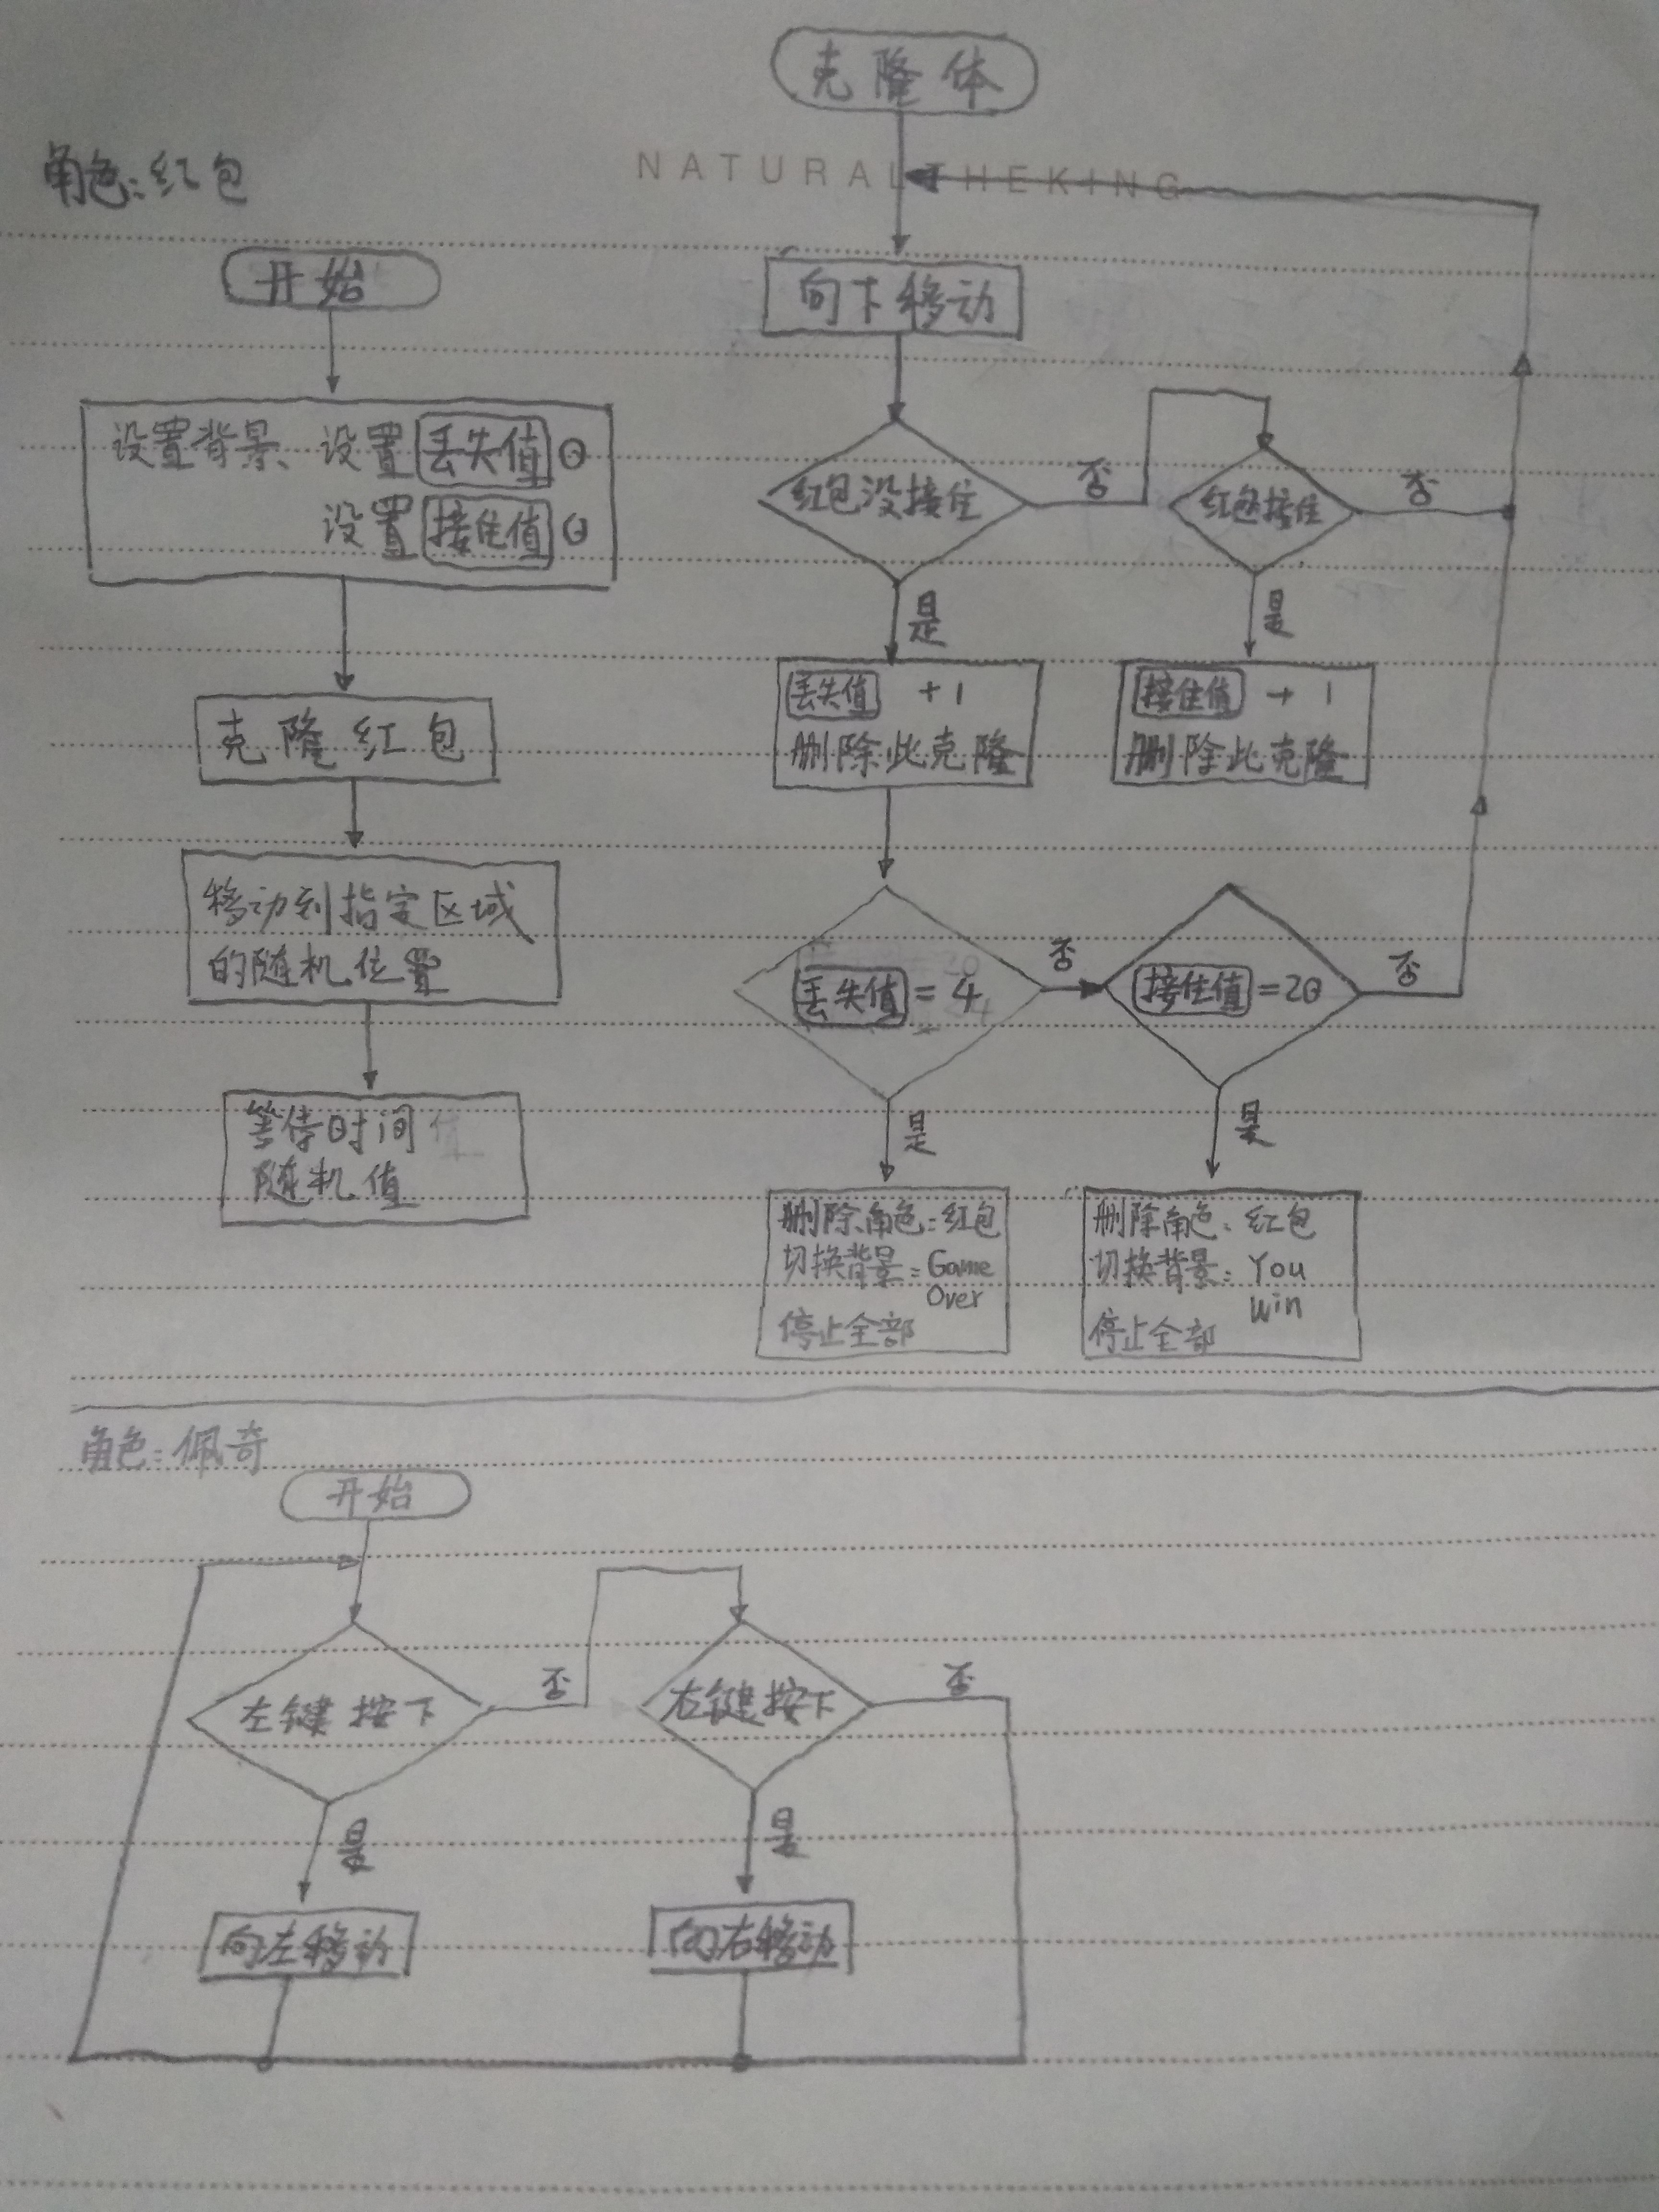 克隆体
NATURALTHEKING
角色:红包
开始
设置背景、设置丢失值0
设置接住值0
克隆红包
移动到指定区域
的随机位置
等待时间
随机值
向下移动
红包没接住
否
红包接住
否
是
是
丢失值 +1
删除此克隆
接住值 +1
删除此克隆
丢失值=4
否
接住值=20
否
是
是
删除角色:红包
切换背景:Game
Over
停止全部
删除角色:红包
切换背景:You
Win
停止全部
角色:佩奇
开始
左键按下
否
右键按下
否
是
是
向左移动
向右移动